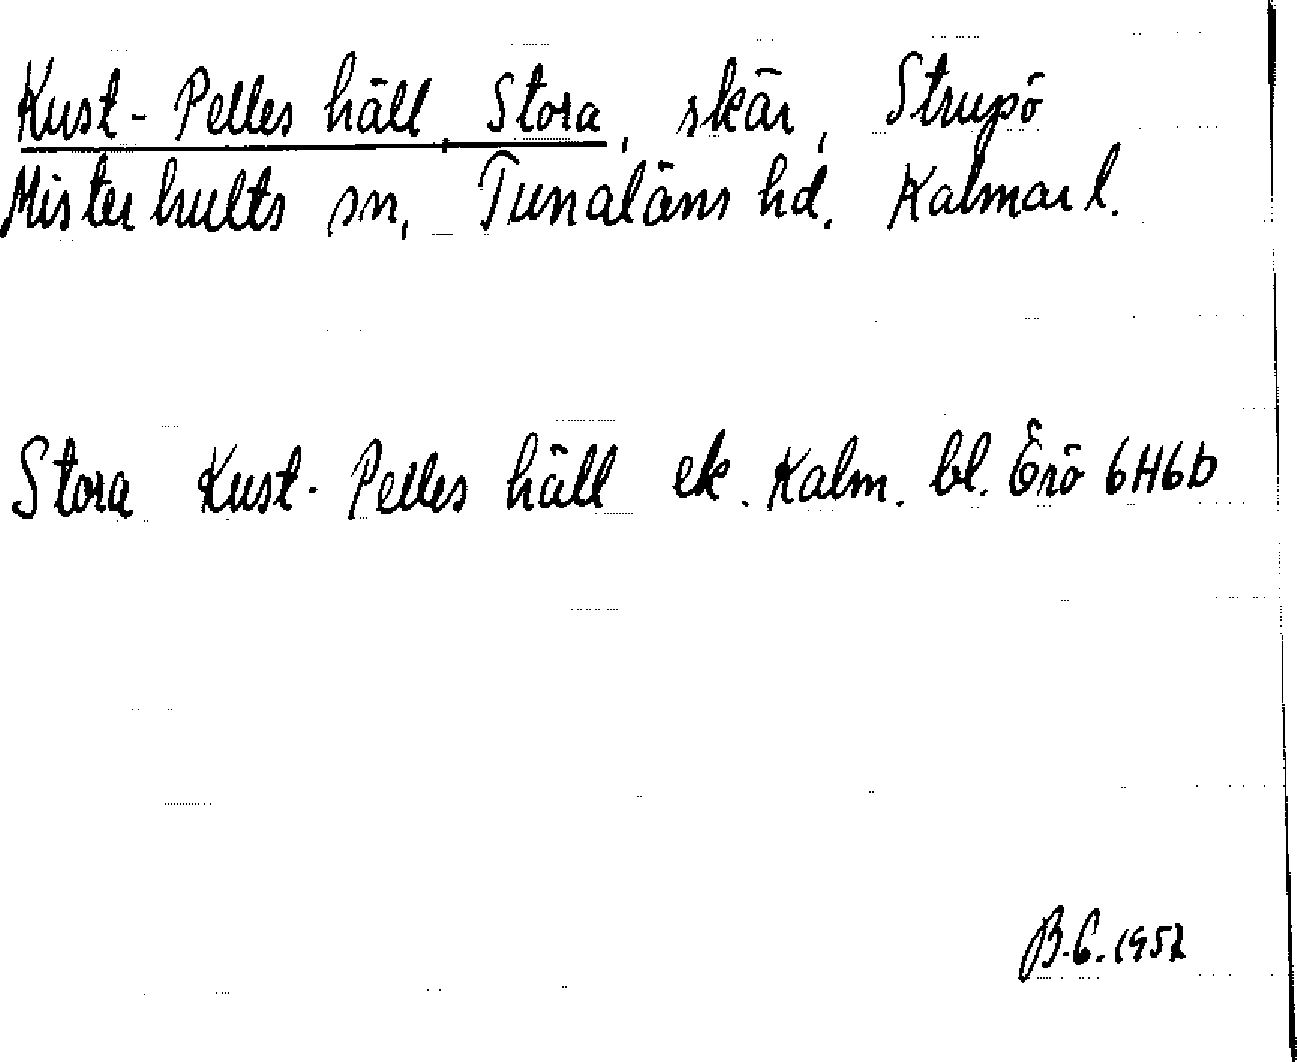 Kust-Pelles häll, Stora, skär, Strupö
Misterhults sn, Tunaläns hd. Kalmar l.
Stora Kust-Pelles häll ek. Kalm. bl. Örö 6H6b
B.C. 1952